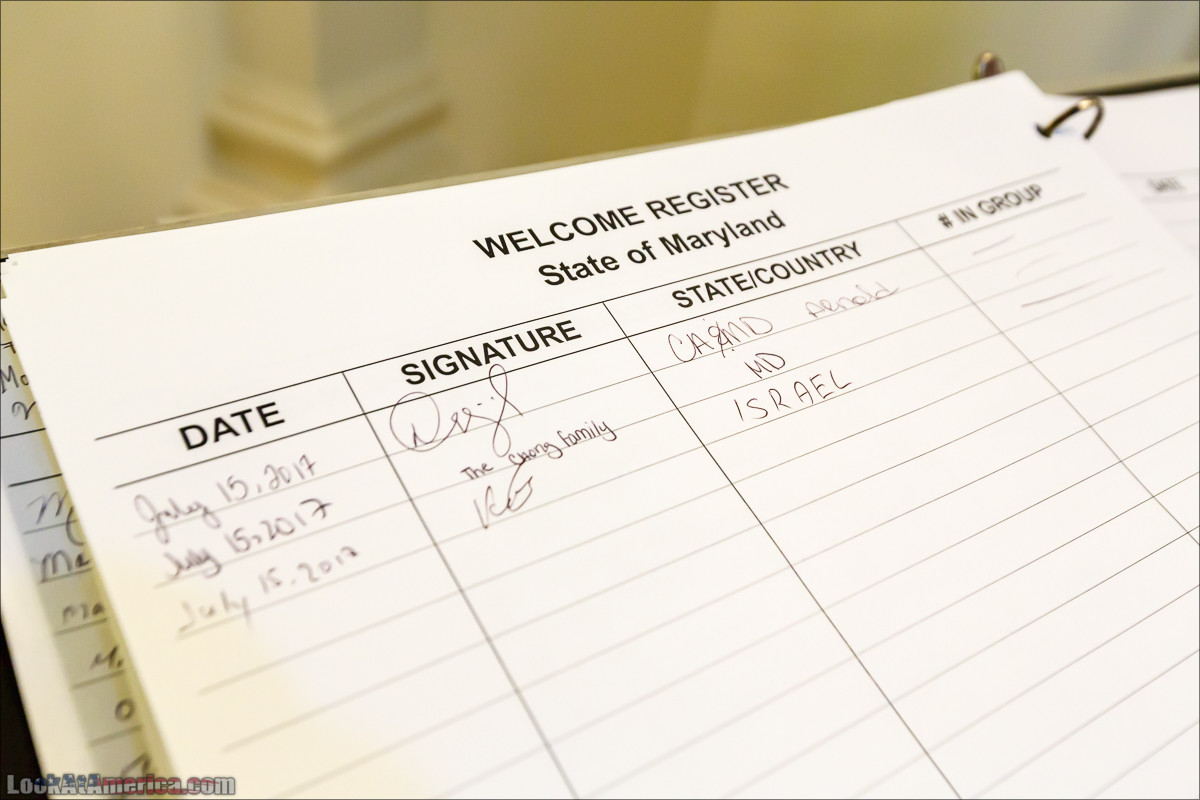 WELCOME REGISTER
State of Maryland
DATE SIGNATURE STATE/COUNTRY # IN GROUP
July 15, 2017 CA & MD Arnold
July 15, 2017 The Chong Family MD
July 15, 2017 ISRAEL
LookAtAmerica.com